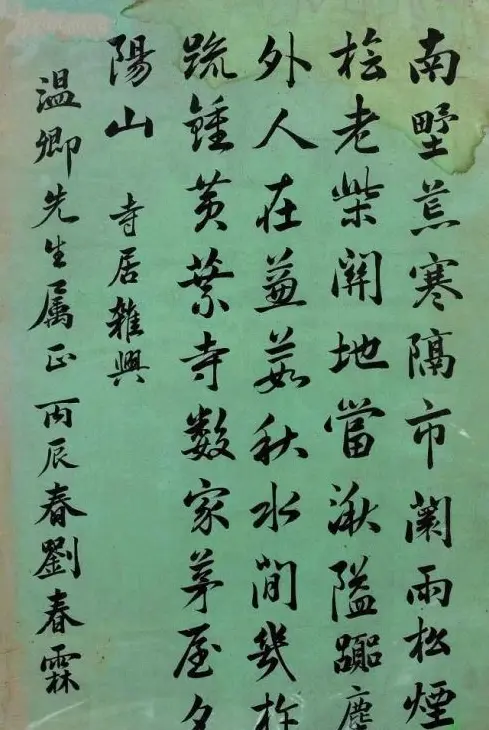 南墅荒寒隔市闤雨松煙
桧老柴關地當湫隘嚻塵
外人在蒹葭秋水間幾杵
疏鍾黄葉寺數家茅屋夕
陽山 寺居雜興
温卿先生属正 丙辰春劉春霖